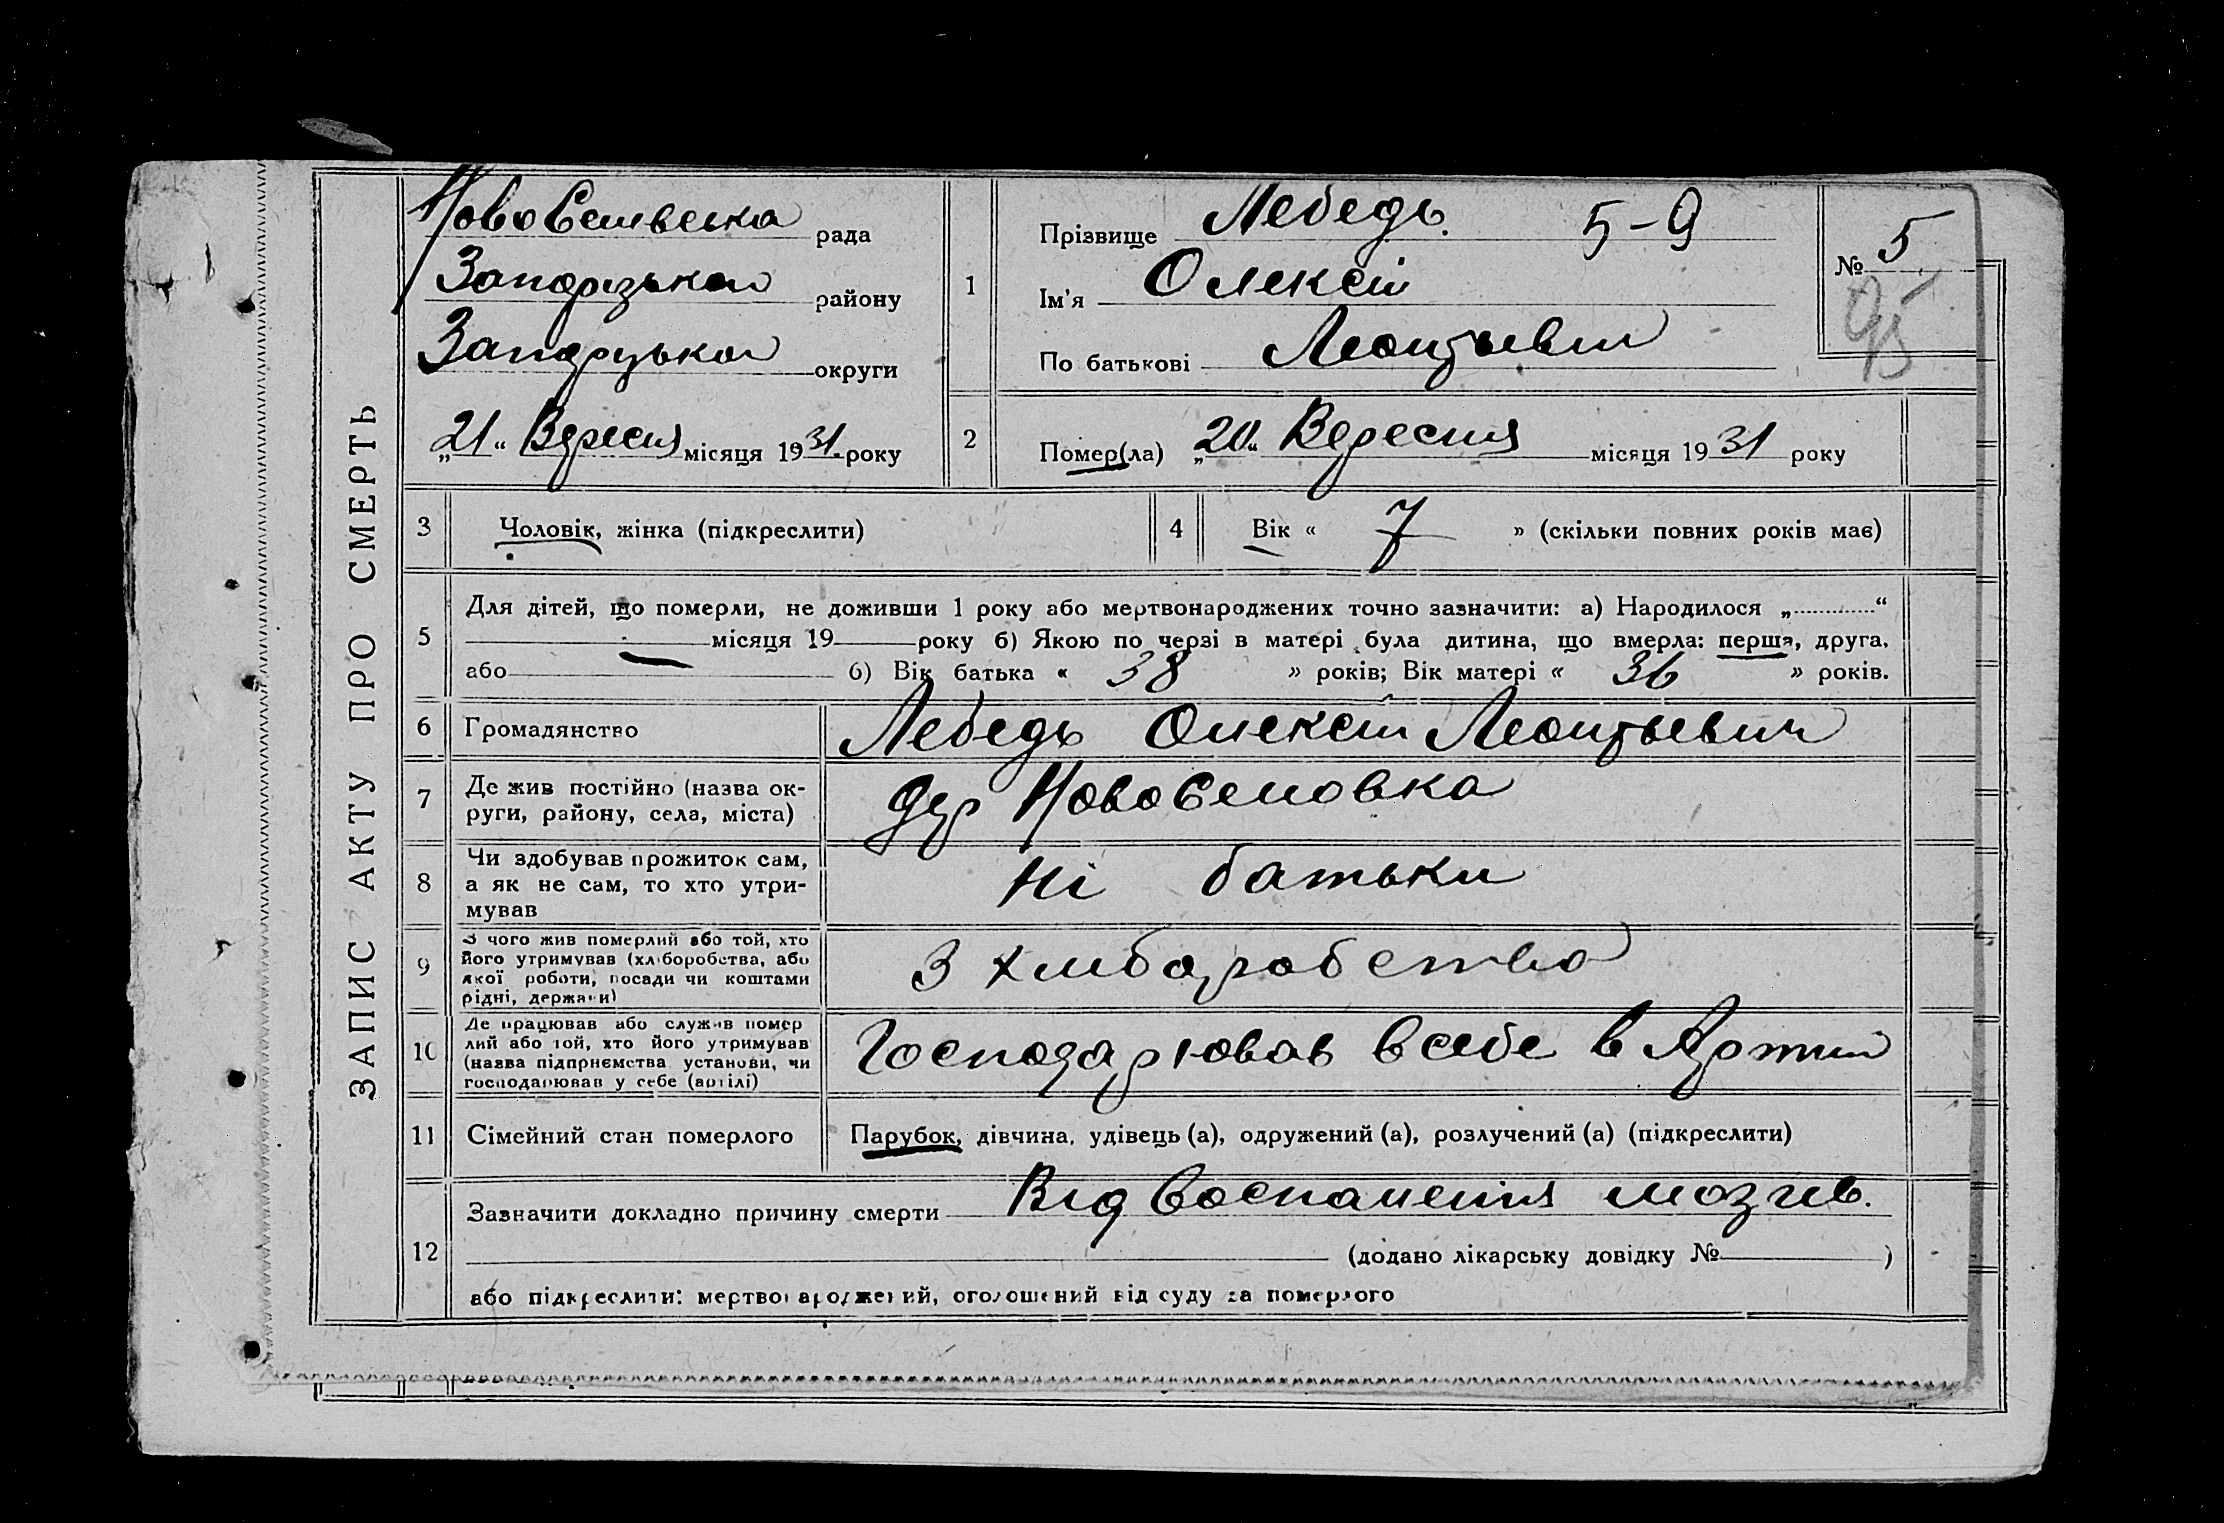 ЗАПИС АКТУ ПРО СМЕРТЬ
рада
Запорізькаи району
округи
„21“ Вересня місяця 1931 року
1
Прізвище Лебедь. 5-9
Ім'я Олексій
По батькові Леонтьевич
№ 5
95
2
Помер(ла) „20“ Вересня місяця 1931 року
3
Чоловік, жінка (підкреслити)
4
Вік « 7 » (скільки повних років має)
5
Для дітей, що померли, не доживши 1 року або мертвонароджених точно зазначити: а) Народилося „ “
місяця 19 року б) Якою по черзі в матері була дитина, що вмерла: перша, друга,
або б) Вік батька « 38 » років; Вік матері « 36 » років.
6
Громадянство
Лебедь Олексій Леонтьевич
7
Де жив постійно (назва ок-
руги, району, села, міста)
дер Нововеновка
8
Чи здобував прожиток сам,
а як не сам, то хто утри-
мував
Ні батьки
9
З чого жив померлий або той, хто
його утримував (хліборобства, або
якої роботи, посади чи коштами
рідні, держави)
З хлиборобства
10
Де працював або служив помер
лий або той, хто його утримував
(назва підприємства установи, чи
господарював у себе (артілі)
Господарював в себе в Артили
11
Сімейний стан померлого
Парубок, дівчина, удівець (а), одружений (а), розлучений (а) (підкреслити)
12
Зазначити докладно причину смерти Від воспаления мозгив.
(додано лікарську довідку № )
або підкреслити: мертвонароджений, оголошений від суду за померлого